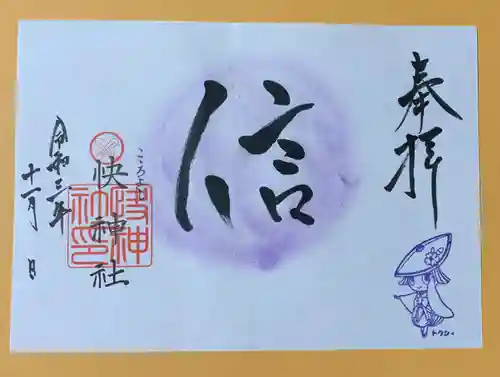 奉拝
信
こころよし
快神社
快神
社印
令和三年
十一月 日